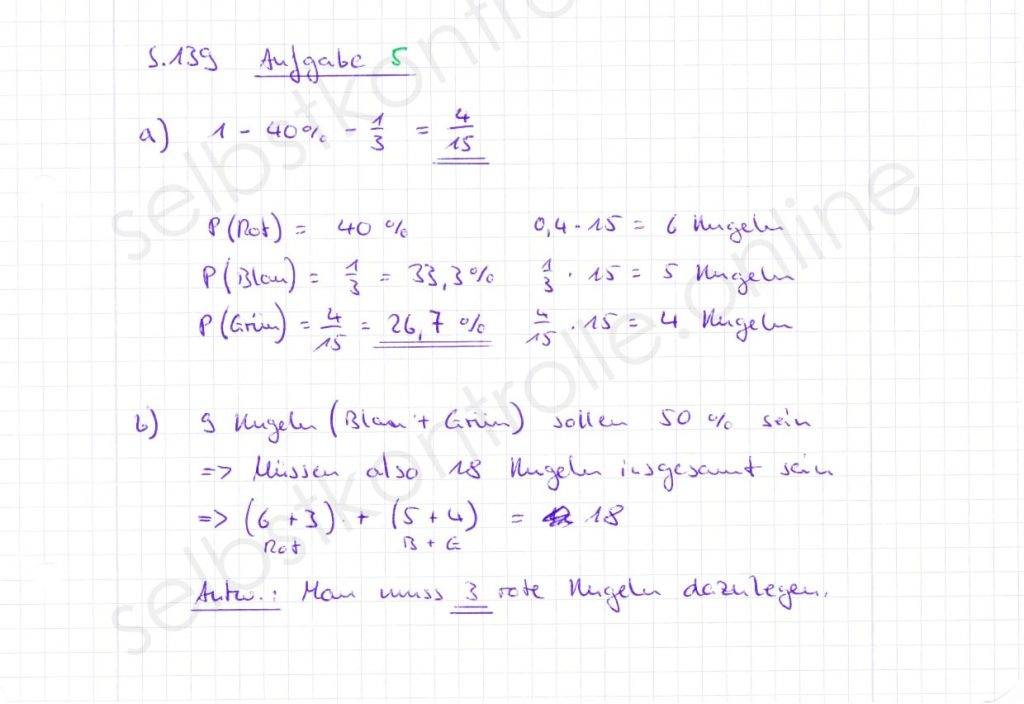 S.139 Aufgabe 5
a) 1 - 40% - 1/3 = 4/15
P(Rot) = 40 % 0,4 · 15 = 6 Kugeln
P(Blau) = 1/3 = 33,3% 1/3 · 15 = 5 Kugeln
P(Grün) = 4/15 = 26,7 % 4/15 · 15 = 4 Kugeln
b) 9 Kugeln (Blau + Grün) sollen 50 % sein
=> Müssen also 18 Kugeln insgesamt sein
=> (6 + 3) + (5 + 4) = 18
Rot B + G
Antw.: Man muss 3 rote Kugeln dazulegen.
selbstkontrolle.online
selbstkontrolle.online